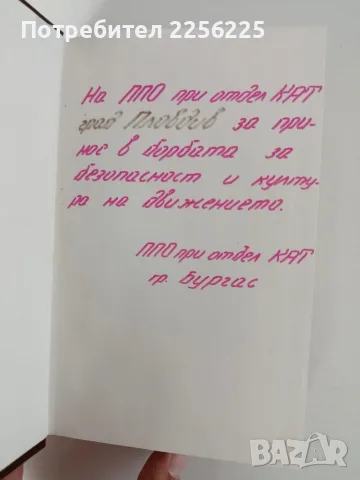 Потребител 2256225
На ППО при отдел КАТ
град Пловдив за при-
нос в борбата за
безопасност и култу-
ра на движението.
ППО при отдел КАТ
гр. Бургас
BAZAR
bg